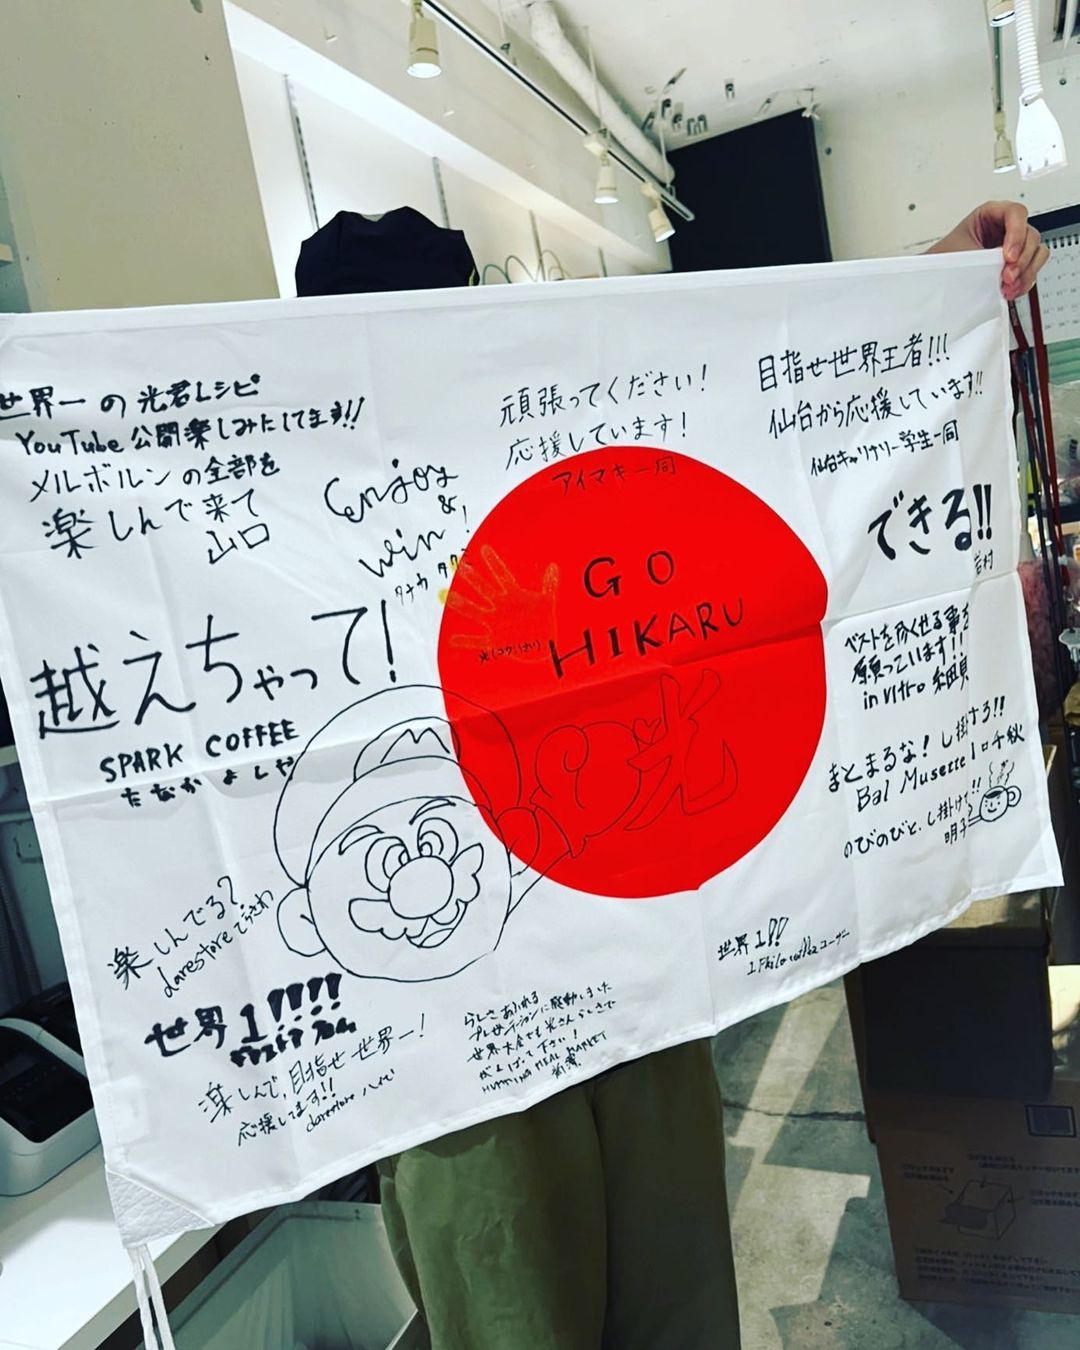 世界一の光君レシピ
YouTube公開楽しみにしてます!!
メルボルンの全部を
楽しんで来て
山口
Enjoy
&
win!
タナカ タクミ
頑張ってください!
応援しています!
アイマキ一同
目指せ世界王者!!!
仙台から応援しています!!
仙台キャリナリー学生一同
できる!!
岩村
GO
HIKARU
光
越えちゃって!
SPARK COFFEE
たなかよしや
ベストを尽くせる事を
願っています!!
in vitro
まとまるな! し掛けろ!!
Bal Musette
千秋
のびのびと、し掛けて!!
明子
楽しんでる?
darestore てらさわ
世界1!!!!
楽しんで、目指せ世界一!
応援してます!!
darestore
らしさあふれる
プレゼンテーションに感動しました
世界大会でも光さんらしさで
がんばって下さい!
HUMMING MEAL MARKET
世界1!!
1 Philo coffee ユーザー